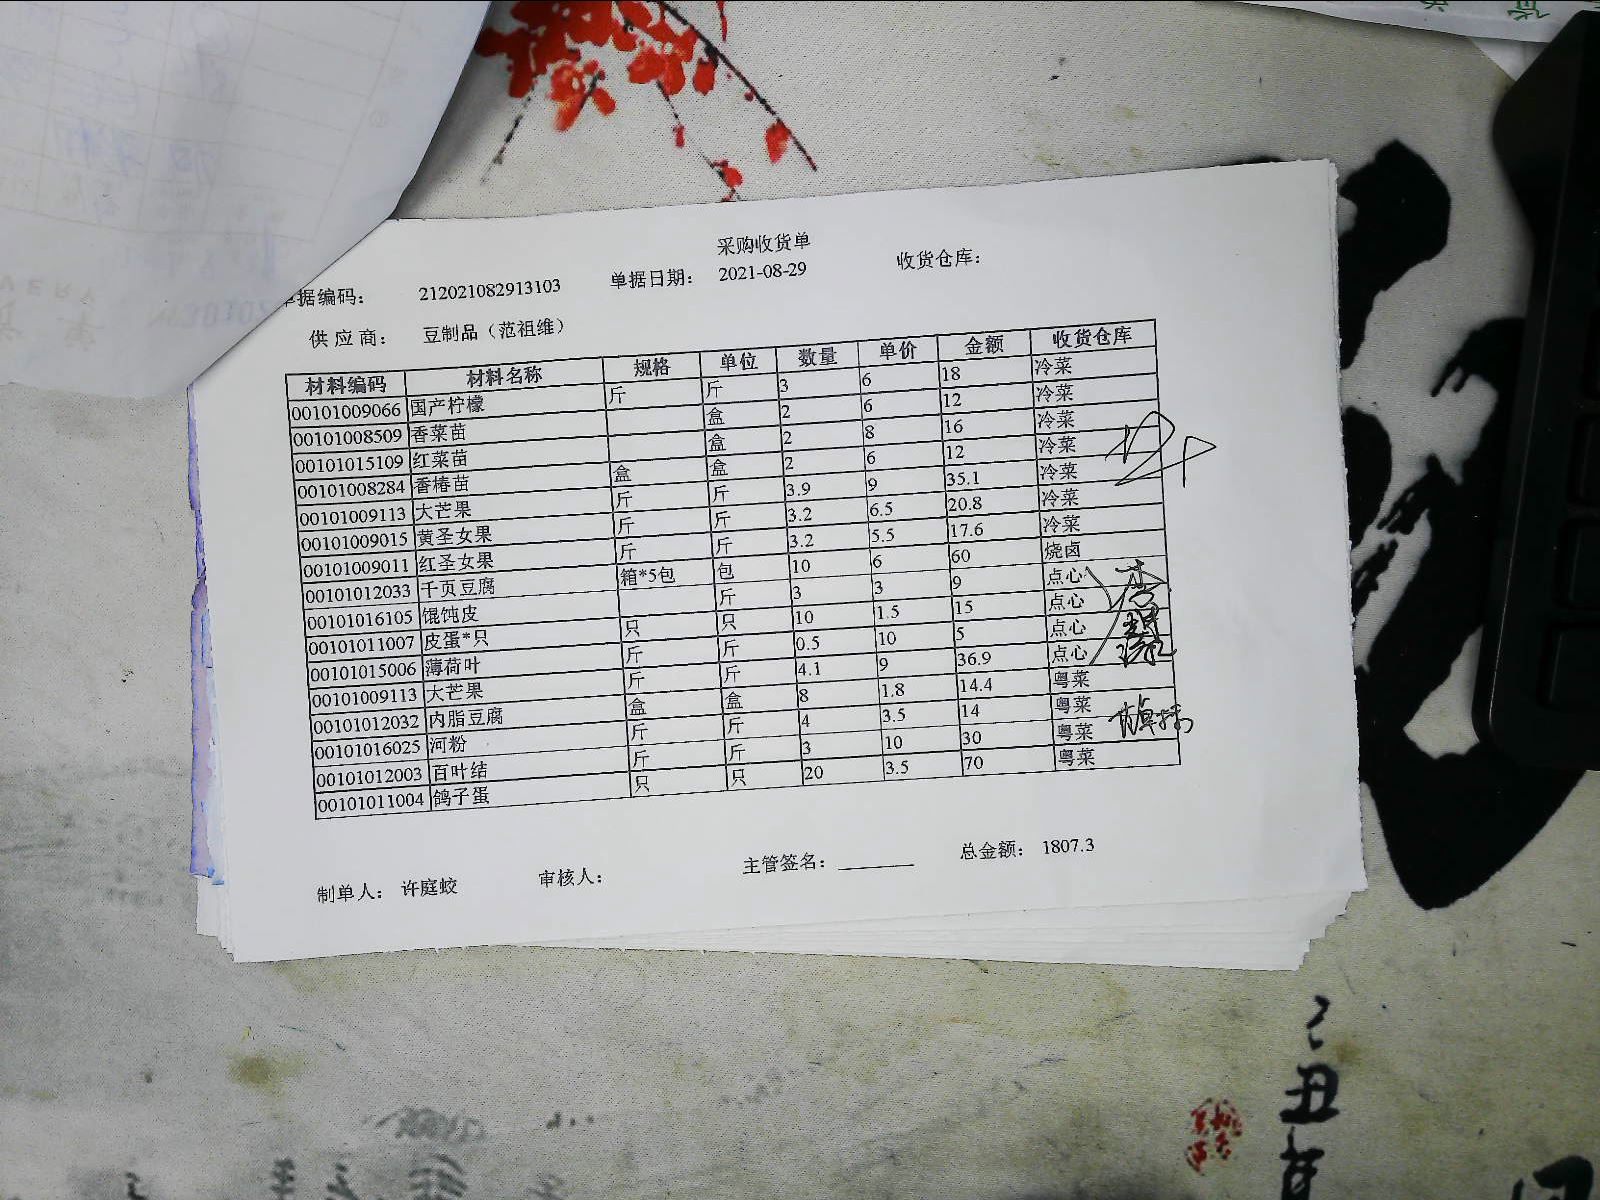 采购收货单
单据编码： 212021082913103 单据日期： 2021-08-29 收货仓库：
供 应 商： 豆制品（范祖维）
材料编码 材料名称 规格 单位 数量 单价 金额 收货仓库
00101009066 国产柠檬 斤 斤 3 6 18 冷菜
00101008509 香菜苗 盒 2 6 12 冷菜
00101015109 红菜苗 盒 2 8 16 冷菜
00101008284 香椿苗 盒 盒 2 6 12 冷菜
00101009113 大芒果 斤 斤 3.9 9 35.1 冷菜
00101009015 黄圣女果 斤 斤 3.2 6.5 20.8 冷菜
00101009011 红圣女果 斤 斤 3.2 5.5 17.6 冷菜
00101012033 千页豆腐 箱*5包 包 10 6 60 烧卤
00101016105 馄饨皮 斤 3 3 9 点心
00101011007 皮蛋*只 只 只 10 1.5 15 点心
00101015006 薄荷叶 斤 斤 0.5 10 5 点心
00101009113 大芒果 斤 斤 4.1 9 36.9 点心
00101012032 内脂豆腐 盒 盒 8 1.8 14.4 粤菜
00101016025 河粉 斤 斤 4 3.5 14 粤菜
00101012003 百叶结 斤 斤 3 10 30 粤菜
00101011004 鸽子蛋 只 只 20 3.5 70 粤菜
制单人： 许庭蛟 审核人： 主管签名： 总金额： 1807.3
丑